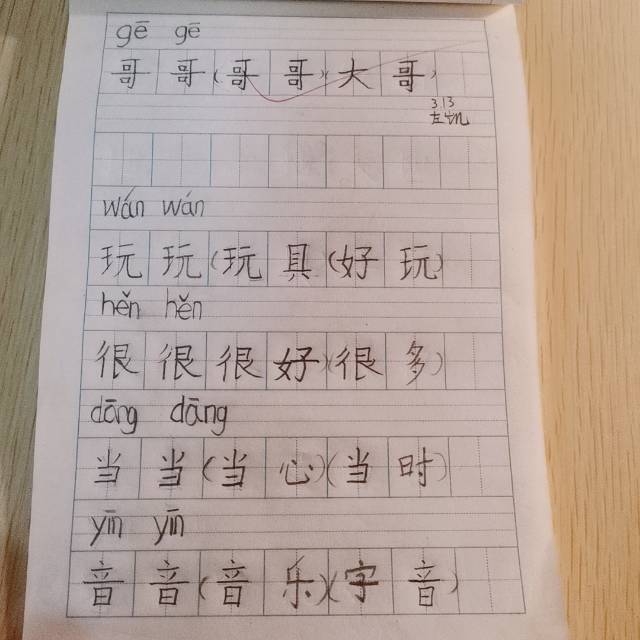 gē gē
哥哥(哥哥)(大哥)
3.13
wán wán
玩玩(玩具)(好玩)
hěn hěn
很很(很好)(很多)
dāng dāng
当当(当心)(当时)
yīn yīn
音音(音乐)(字音)